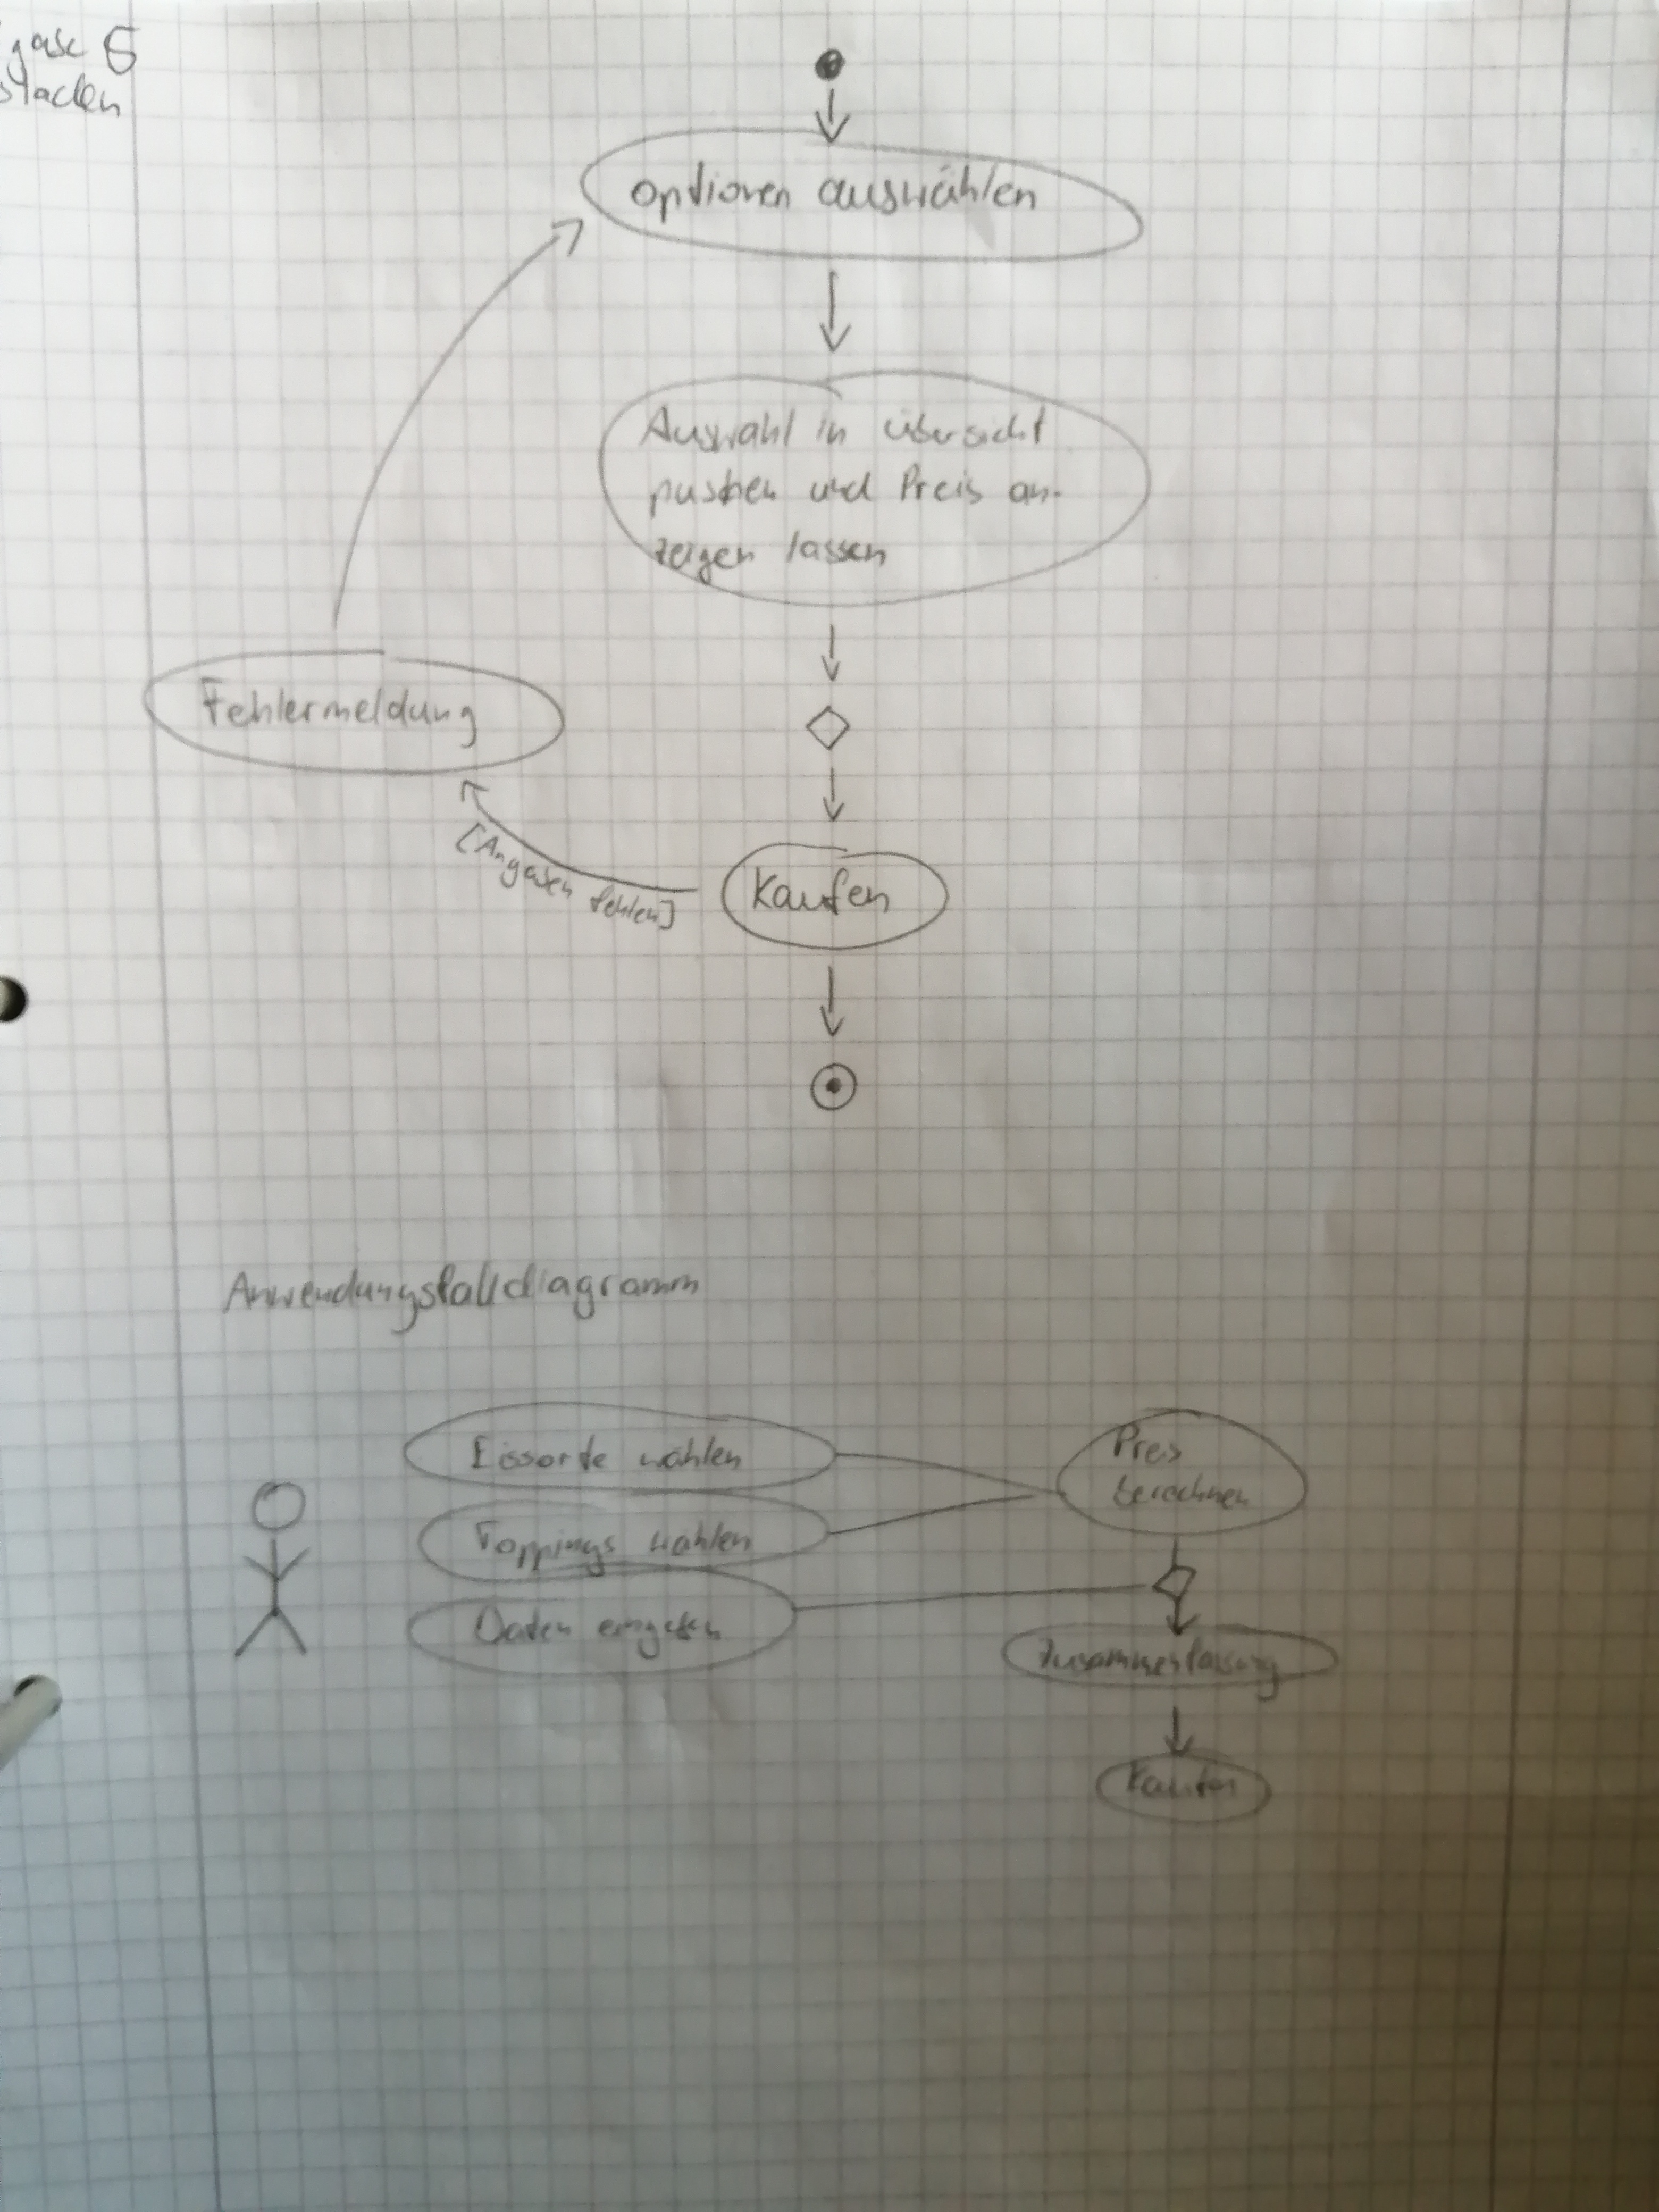 gabe 5
optionen auswählen
Auswahl in übersicht
pushen und Preis an-
zeigen lassen
Fehlermeldung
[Angaben fehlen]
Kaufen
Anwendungsfalldiagramm
Eissorte wählen
Preis
berechnen
Toppings wählen
Daten eingeben
Zusammenfassung
Kaufen